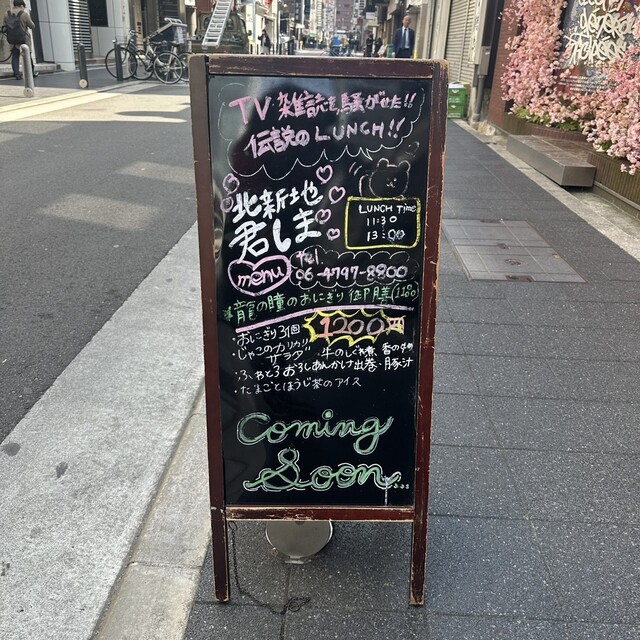 TV 雑誌を騒がせた!!
伝説の LUNCH!!
北新地
君しま
LUNCH Time
11:30
13:00
menu
tel.
06-4797-8800
龍の瞳のおにぎり御膳
1200円
・おにぎり3個
・じゃこのカリカリサラダ ・牛のしぐれ煮 香のもの
・ふわとろおろしあんかけ出巻・豚汁
・たまごとほうじ茶のアイス
Coming
Soon